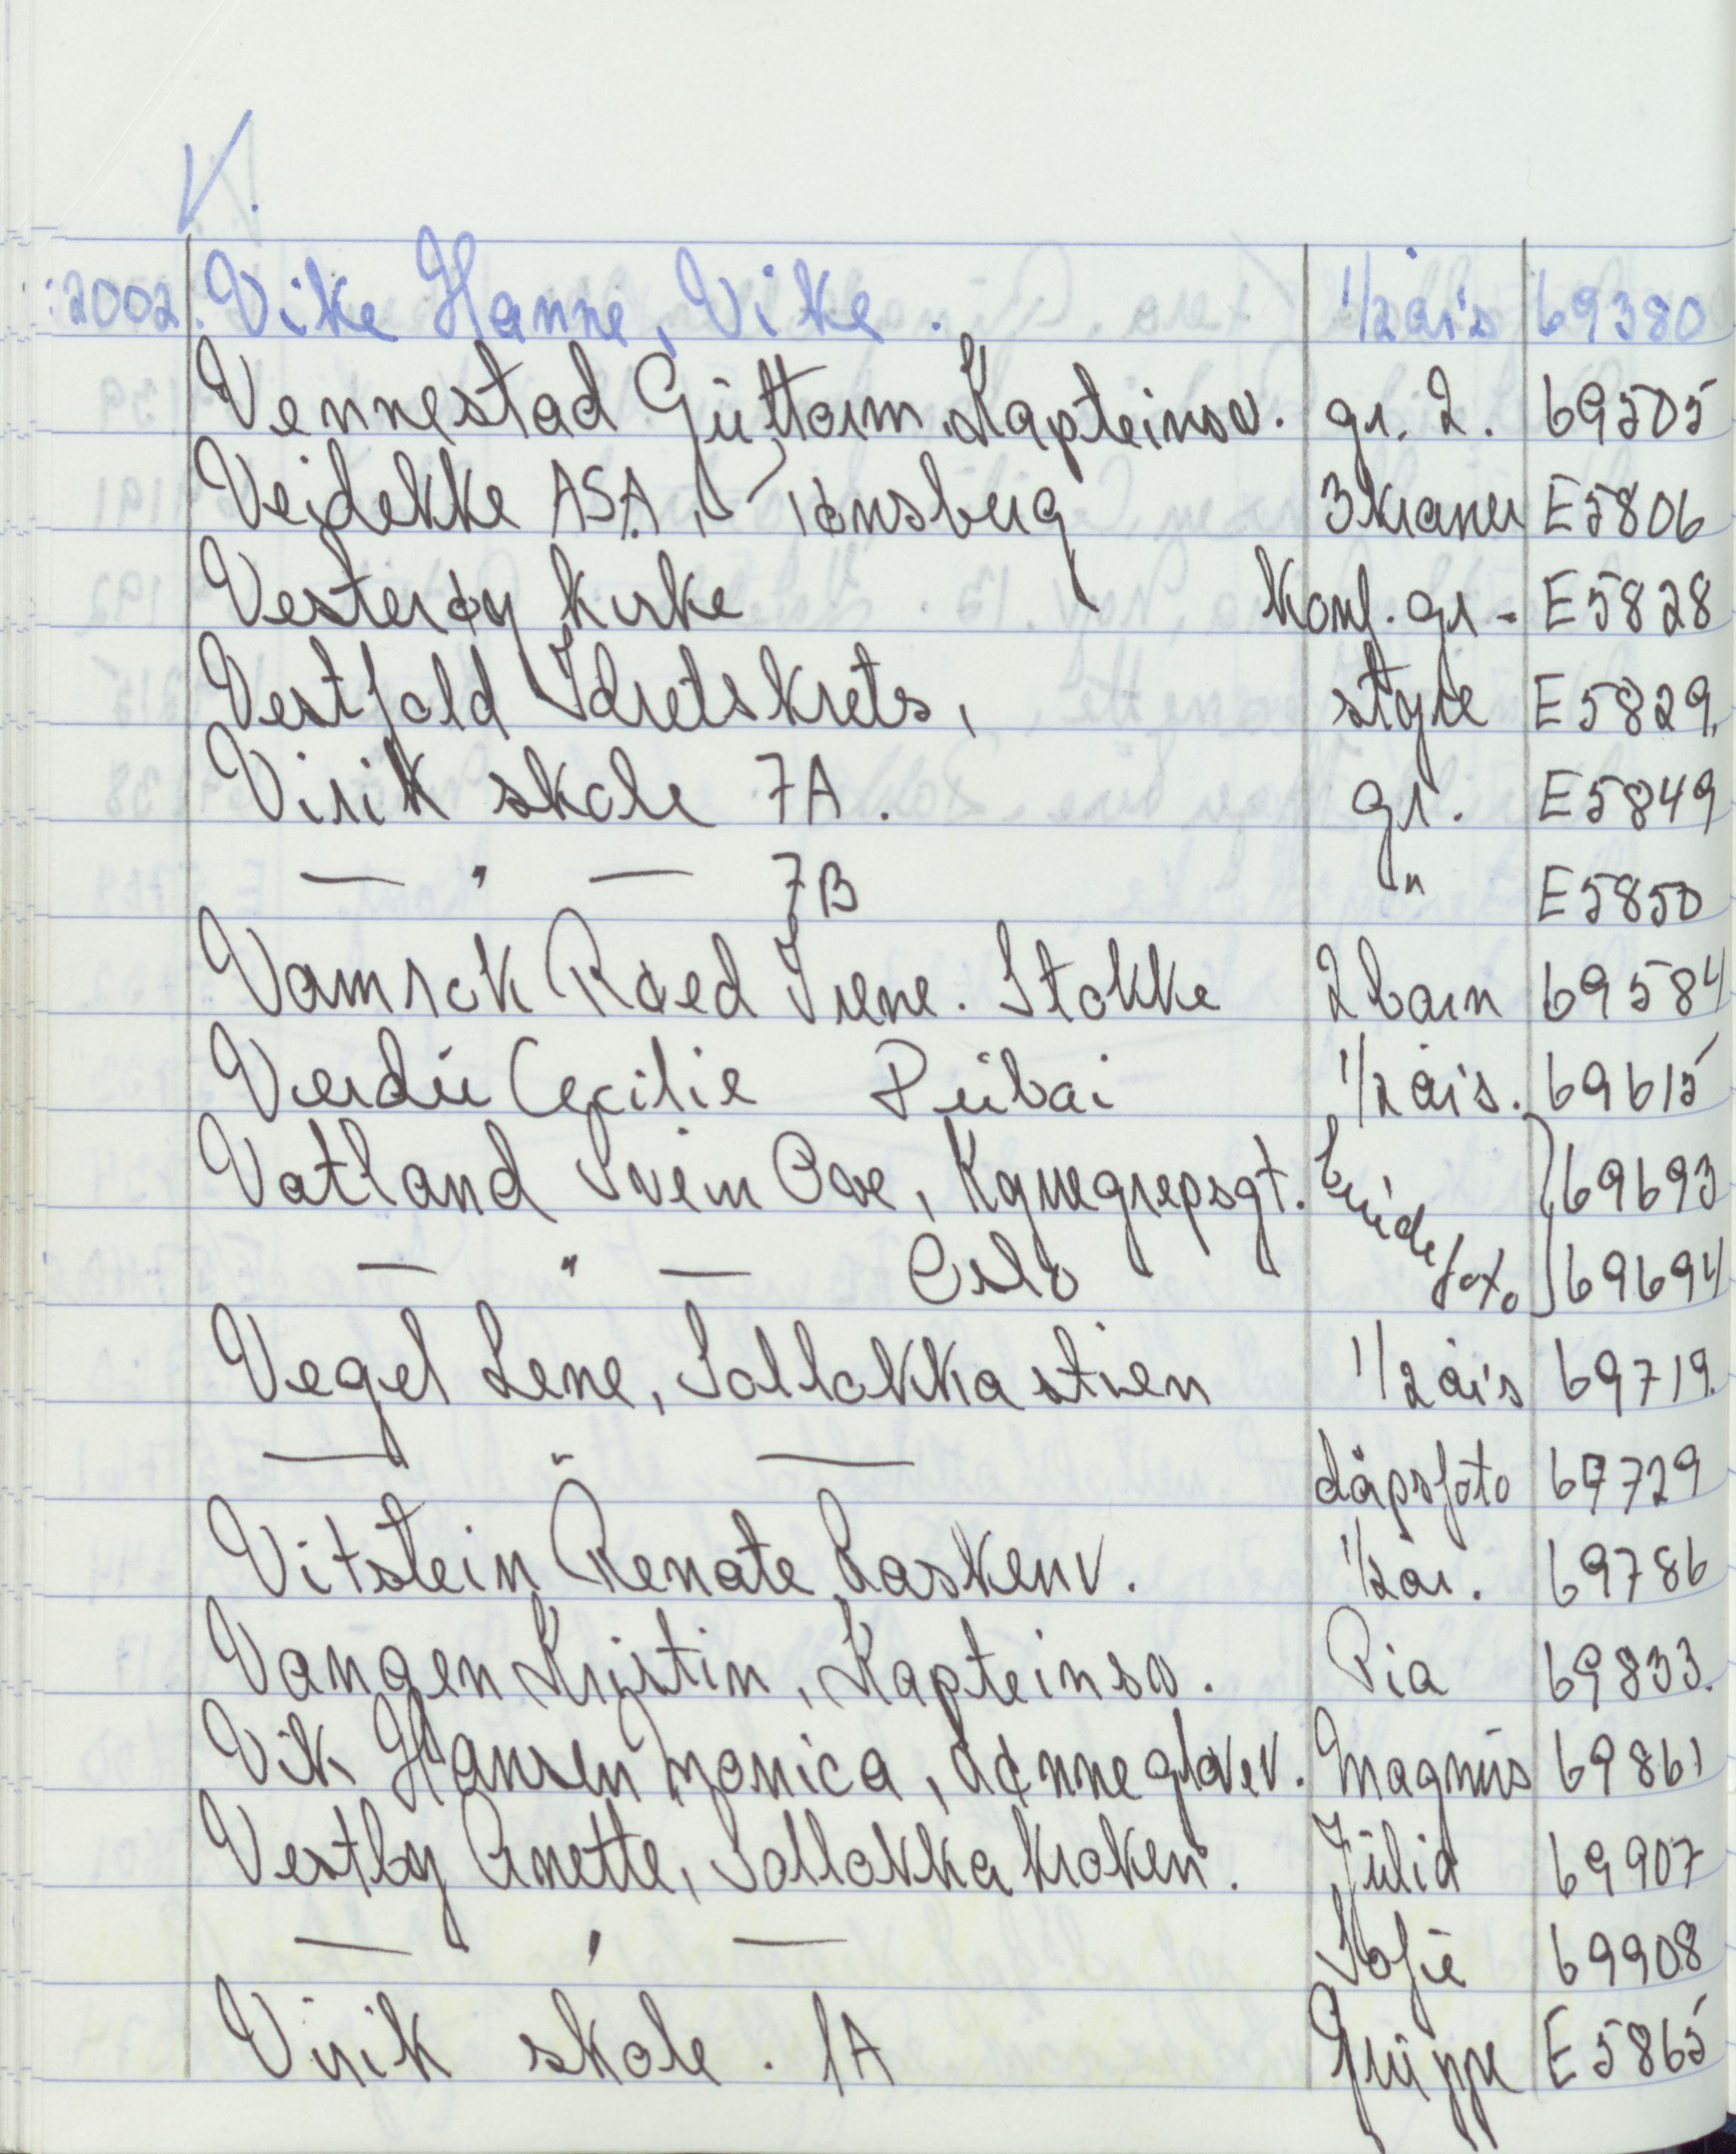 V.
2002. Vike Hanne, Vike. 1/2 års 69380
Vennestad Guttorm, Kapteinsv. gr. 2. 69505
Veidekke ASA, Tønsberg 3 kraner E5806
Vesterøy kirke Konf. gr - E5828
Vestfold Idretskrets, styre E5829.
Virik skole 7A. gr. E5849
— " — 7B " E5850
Vamrak Røed Irene. Stokke 2 barn 69584
Verdu Cecilie Dubai 1/2 års. 69615
Vatland Svein Ove, Kyrregrepsgt. brudefoto 69693
— " — Oslo 69694
Vegel Lene, Solløkkastien 1/2 års 69719.
— " — dåpsfoto 69729
Vitstein Renate Laskenv. 1/2 år. 69786
Vangen Kristin, Kapteinsv. Pia 69833.
Vik Hansen Monica, Magnus 69861
Vestby Anette, Solløkkakroken. Julia 69907
— " — Sofie 69908
Virik skole. 1A Gruppe E5865